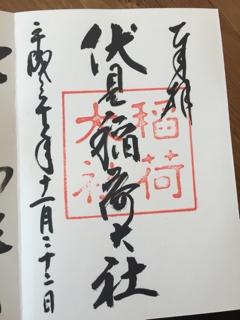 奉拝
伏見稲荷大社
稲荷
平成 年十一月二十二日